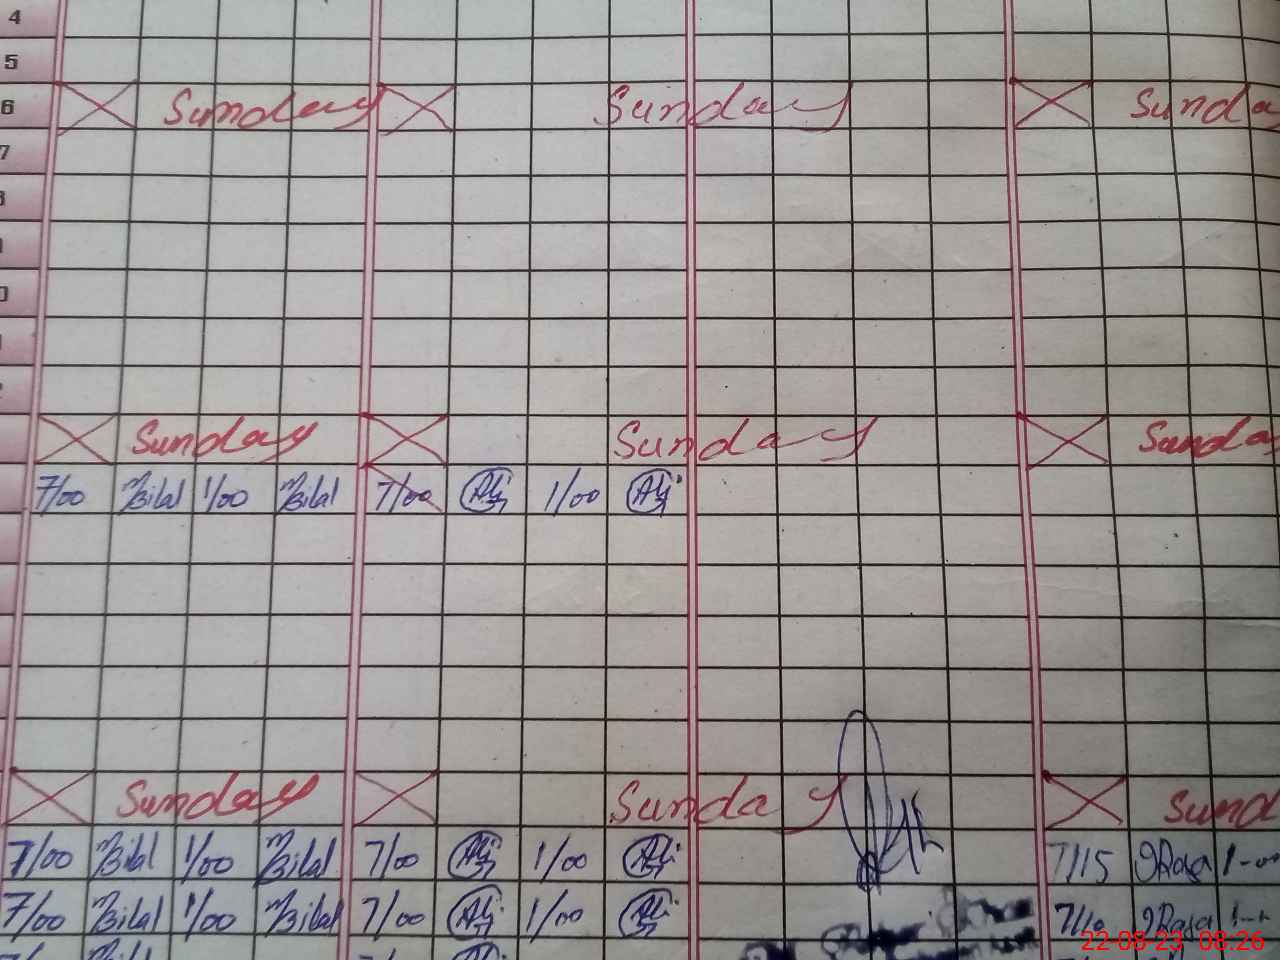 4
5
6 Sunday Sunday Sunda
7
Sunday Sunday Sunda
7/00 mBilal 1/00 mBilal 7/00 Ali 1/00 Ali
Sunday Sunday Sund
7/00 mBilal 1/00 mBilal 7/00 Ali 1/00 Ali 7/15
7/00 mBilal 1/00 mBilal 7/00 Ali 1/00 Ali 7/10
22-08-23 08:26